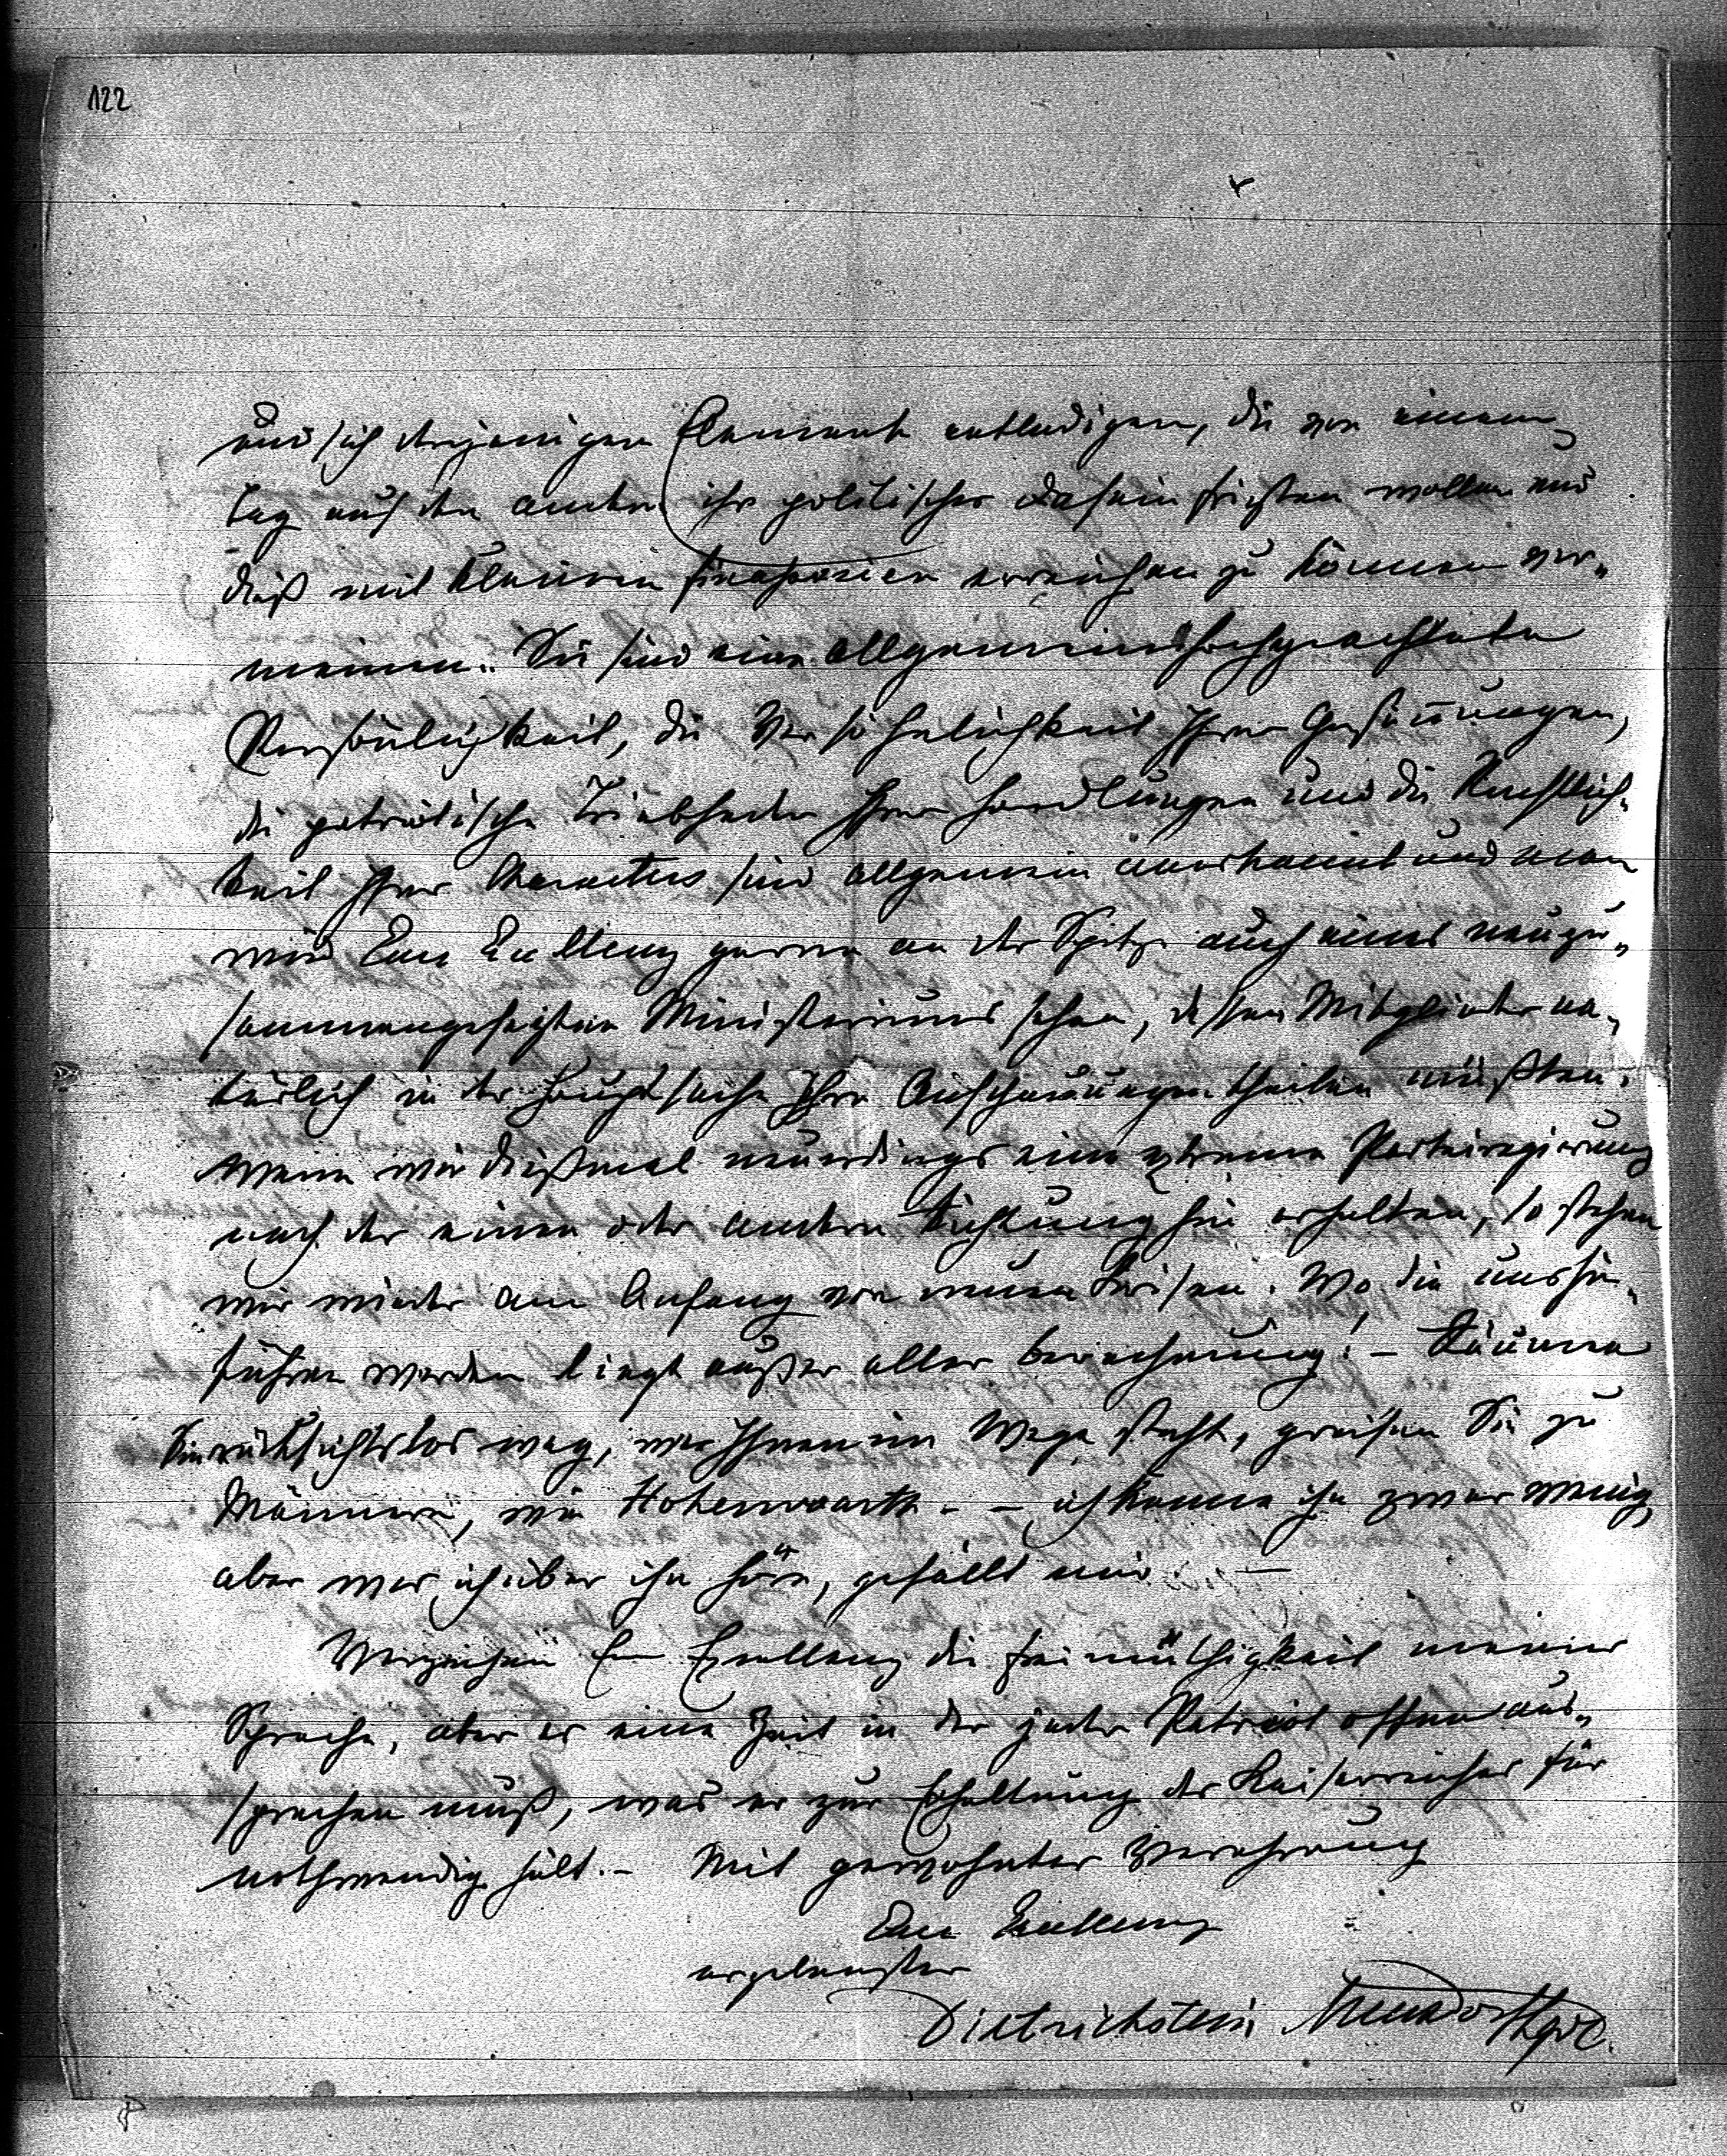 122
und sich derjenigen Elemente entledigen, die von einem
Tag auf den andern ihr politisches Dasein fristen wollen und
dieß mit kleinen Finasserien erreichen zu können ver„
meinen. Sie sind eine allgemein hochgeachtete
Persönlichkeit, die Versöhnlichkeit Ihrer Gesinnungen,
die patriotische Triebfeder Ihrer Handlungen und die Rechtlich„
keit Ihres Characters sind allgemein anerkannt und man
wird Eure Excellenz gerne an der Spitze auch eines neuzu„
sammengesetzten Ministeriums sehen, dessen Mitglieder na„
türlich in der Hauptsache Ihre Anschauungen theilen müßten.
Wenn wir dießmal neuerdings eine extreme Parteiregierung
nach der einen oder andern Richtung hin erhalten, so stehen
wir wieder am Anfang von neuen Krisen. Wo, die uns hin„
führen werden liegt außer aller Berechnung! – Räumen
Sie rücksichtslos weg, was Ihnen im Wege steht, greifen Sie zu
Männern, wie Hohenwarth – – ich kenne ihn zwar wenig,
aber was ich über ihn höre, gefällt mir. –
Verzeihen Eure Excellenz die Freimüthigkeit meiner
Sprache, aber es eine Zeit in der jeder Patriot offen aus„
sprechen muß, was er zur Erhaltung des Kaiserreiches für
nothwendig hält. – Mit gewohnter Verehrung
Eure Excellenz
ergebenster
Dietrichstein